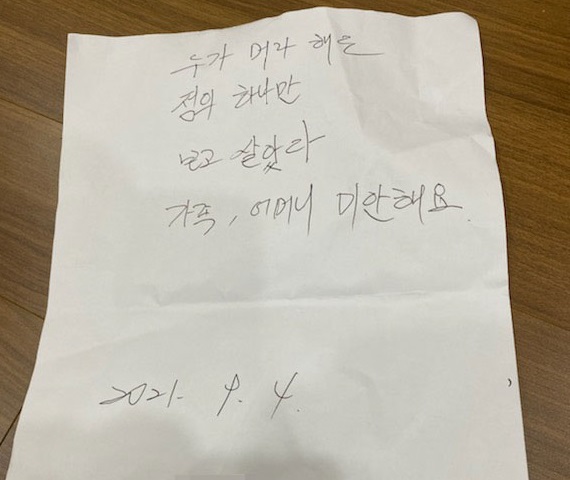 누가 머라 해은
점의 하나만
보고 살았다
가족, 어머니 미안해요.
2021. 9. 4.